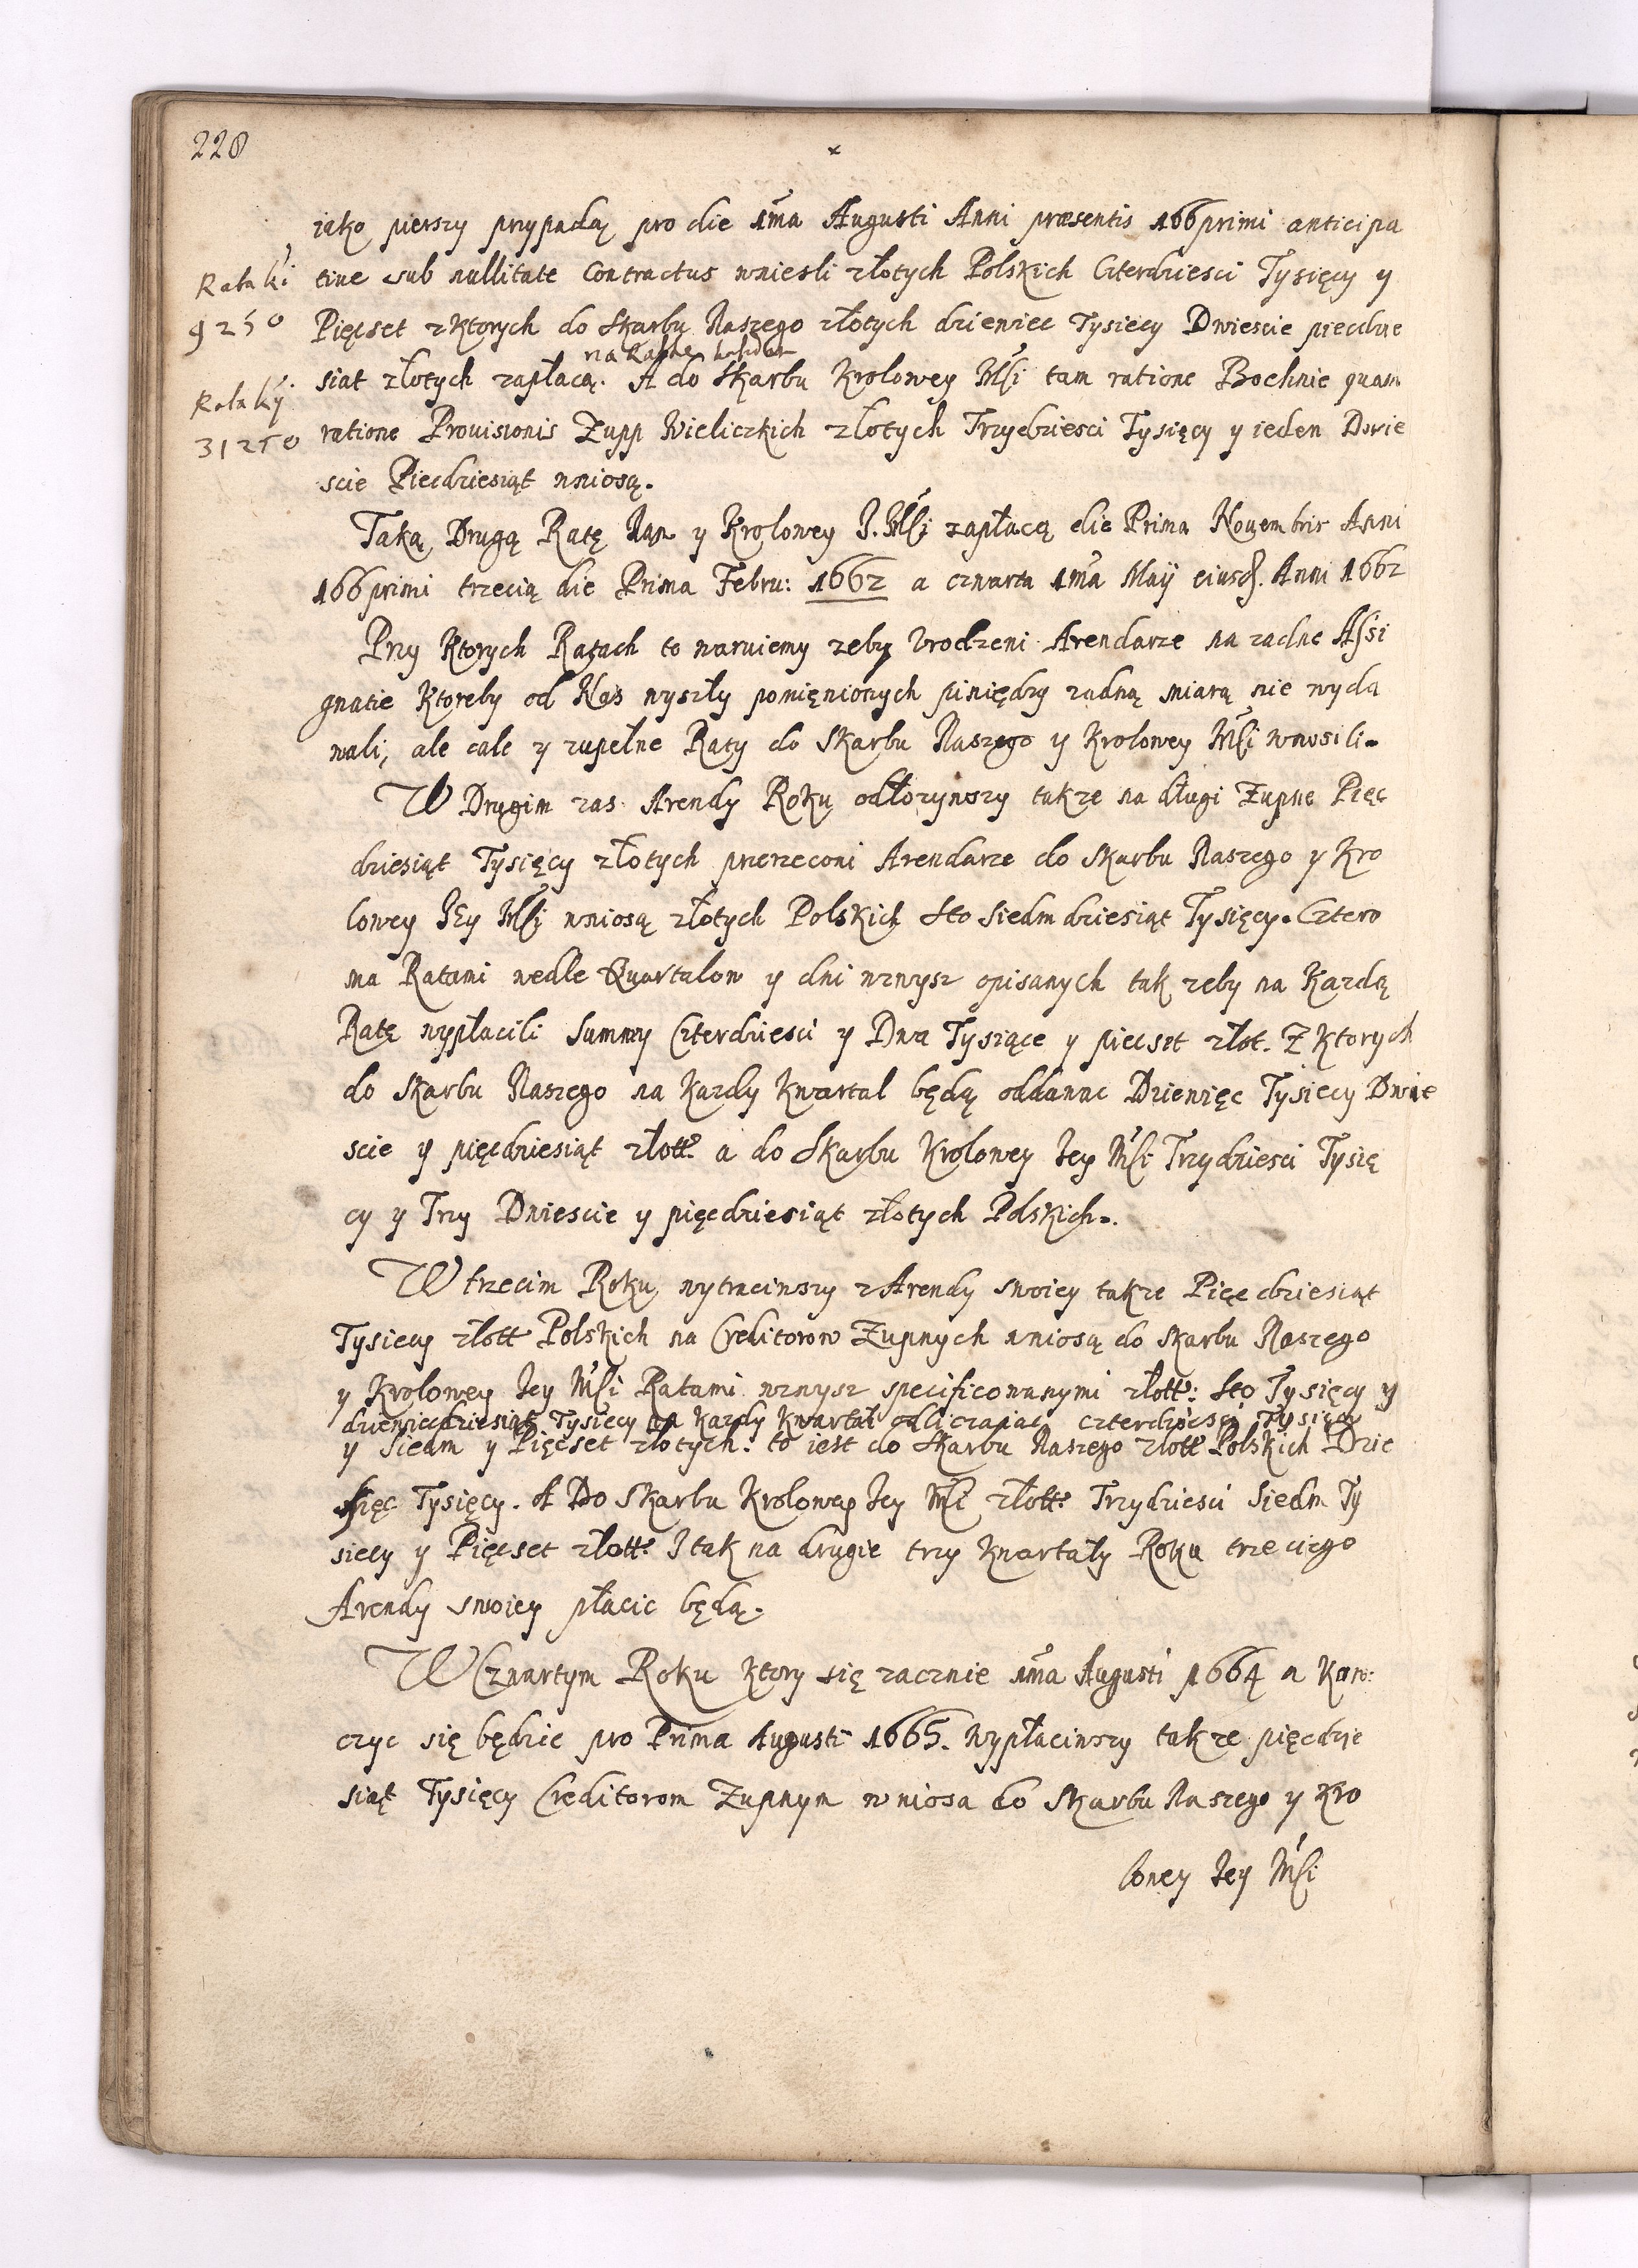 228
iako pierszy przypadą pro die 1ma Augusti Anni præsentis 166primi anticipa
tiue sub nullitate Contractus wniesli złotych Polskich Czterdziesci Tysięcy y
9250
Pięcset z ktorych do Skarbu Naszego złotych dziewiec Tysiecy Dwiescie piecdzie
na Ratę
siat złotych zapłacą. A do Skarbu Krolowey JMsci tam ratione Bochnie quam
31250
ratione Prouisionis Zupp Wieliczkich złotych Trzydziesci Tysięcy y ieden Dwie
scie Piecdziesiąt wniosą.
Taką Drugą Ratę Nąm y Krolowey J. Msci zapłacą die Prima Nouembris Anni
166primi trzecią die Prima Febru: 1662 a czwarta 1ma Maÿ eiusd. Anni 1662
Przy Ktorych Ratach to waruiemy zeby Vrodzeni Arendarze na zadne Assi
gnatie Ktoreby od Nas wyszły pomięnionych piniędzy zadną miarą nie wyda
wali, ale cale y zupełne Raty do Skarbu Naszego y Krolowey JMsci wnosili.
W Drugim zas Arendy Roku odłozywszy takze na długi Zupne Pięc
dziesiąt Tysięcy złotych przerzeconi Arendarze do Skarbu Naszego y Kro
lowey JEy Msci wniosą złotych Polskich Sto Siedmdziesiąt Tysięcy. Cztero
ma Ratami wedle Quartałow y dni wzwysz opisanych tak zeby na Kazdą
Ratę wypłacili Summy Czterdziesci y Dwa Tysiące y piecset złot. Z Ktorych
do Skarbu Naszego na Kazdy Kwartał będą oddawac Dziewięc Tysiecy Dwie
scie y pięcdziesiąt złott. a do Skarbu Krolowey Jey Msci Trzydziesci Tysię
cy y Trzy Dwiescie y pięcdziesiąt złotych Polskich.
W trzecim Roku wytraciwszy z Arendy swoiey takze Pięcdziesiąt
Tysiecy złott Polskich na Creditorow Zupnych wniosą do Skarbu Naszego
y Krolowey Jey Msci Ratami wzwysz specificowanymi złott: Sto Tysięcy y
dziewiecdziesiąt Tysiecy na Kazdy Kwartał odliczaiąc czterdziesci Tysięcy
y Siedm y Pięcset złotych. to iest do Skarbu Naszego złott Polskich Dzie
sięc Tysięcy. A Do Skarbu Krolowey Jey Msci złott. Trzydziesci Siedm Ty
siecy y Pięcset złott. I tak na drugie trzy Kwartały Roku trzeciego
Arendy swoiey płacic będą.
W Czwartym Roku Ktory się zacznie 1ma Augusti 1664 a Kon:
czyc się będzie pro Prima Augusti 1665. Wypłaciwszy takze pięcdzie
siąt Tysięcy Creditorom Zupnym wniosa do Skarbu Naszego y Kro
lowey Jey Msci